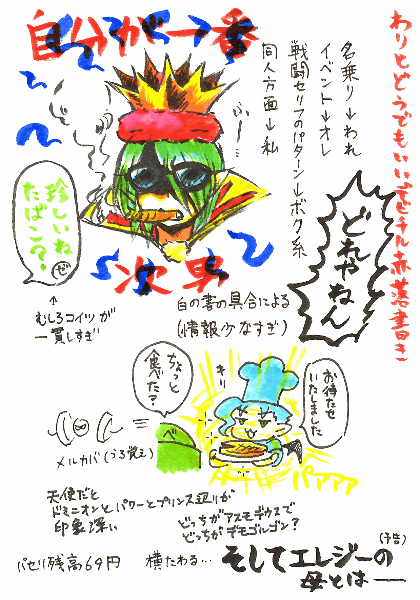 わりとどうでもいいデビチル赤落書き
自分が一番
名乗り→われ
イベント→オレ
戦闘セリフのパターン→ボク系
同人方面→私
ふーー…
どれやねん
珍しいね
たばこ?
ゼ
↑
むしろコイツが
一貫しすぎ
次男
白の書の具合による
(情報少なすぎ)
ちょっと
食べた?
キリッ
お待たせ
いたしました
ベ
パアアア
メルカバ(うろ覚え)
天使だと
ドミニオンとパワーとプリンス辺りが
印象深い
どっちがアスモデウスで
どっちがデモゴルゴン?
パセリ残高69円
横たわる…
(予告)
そしてエレジーの
母とは──